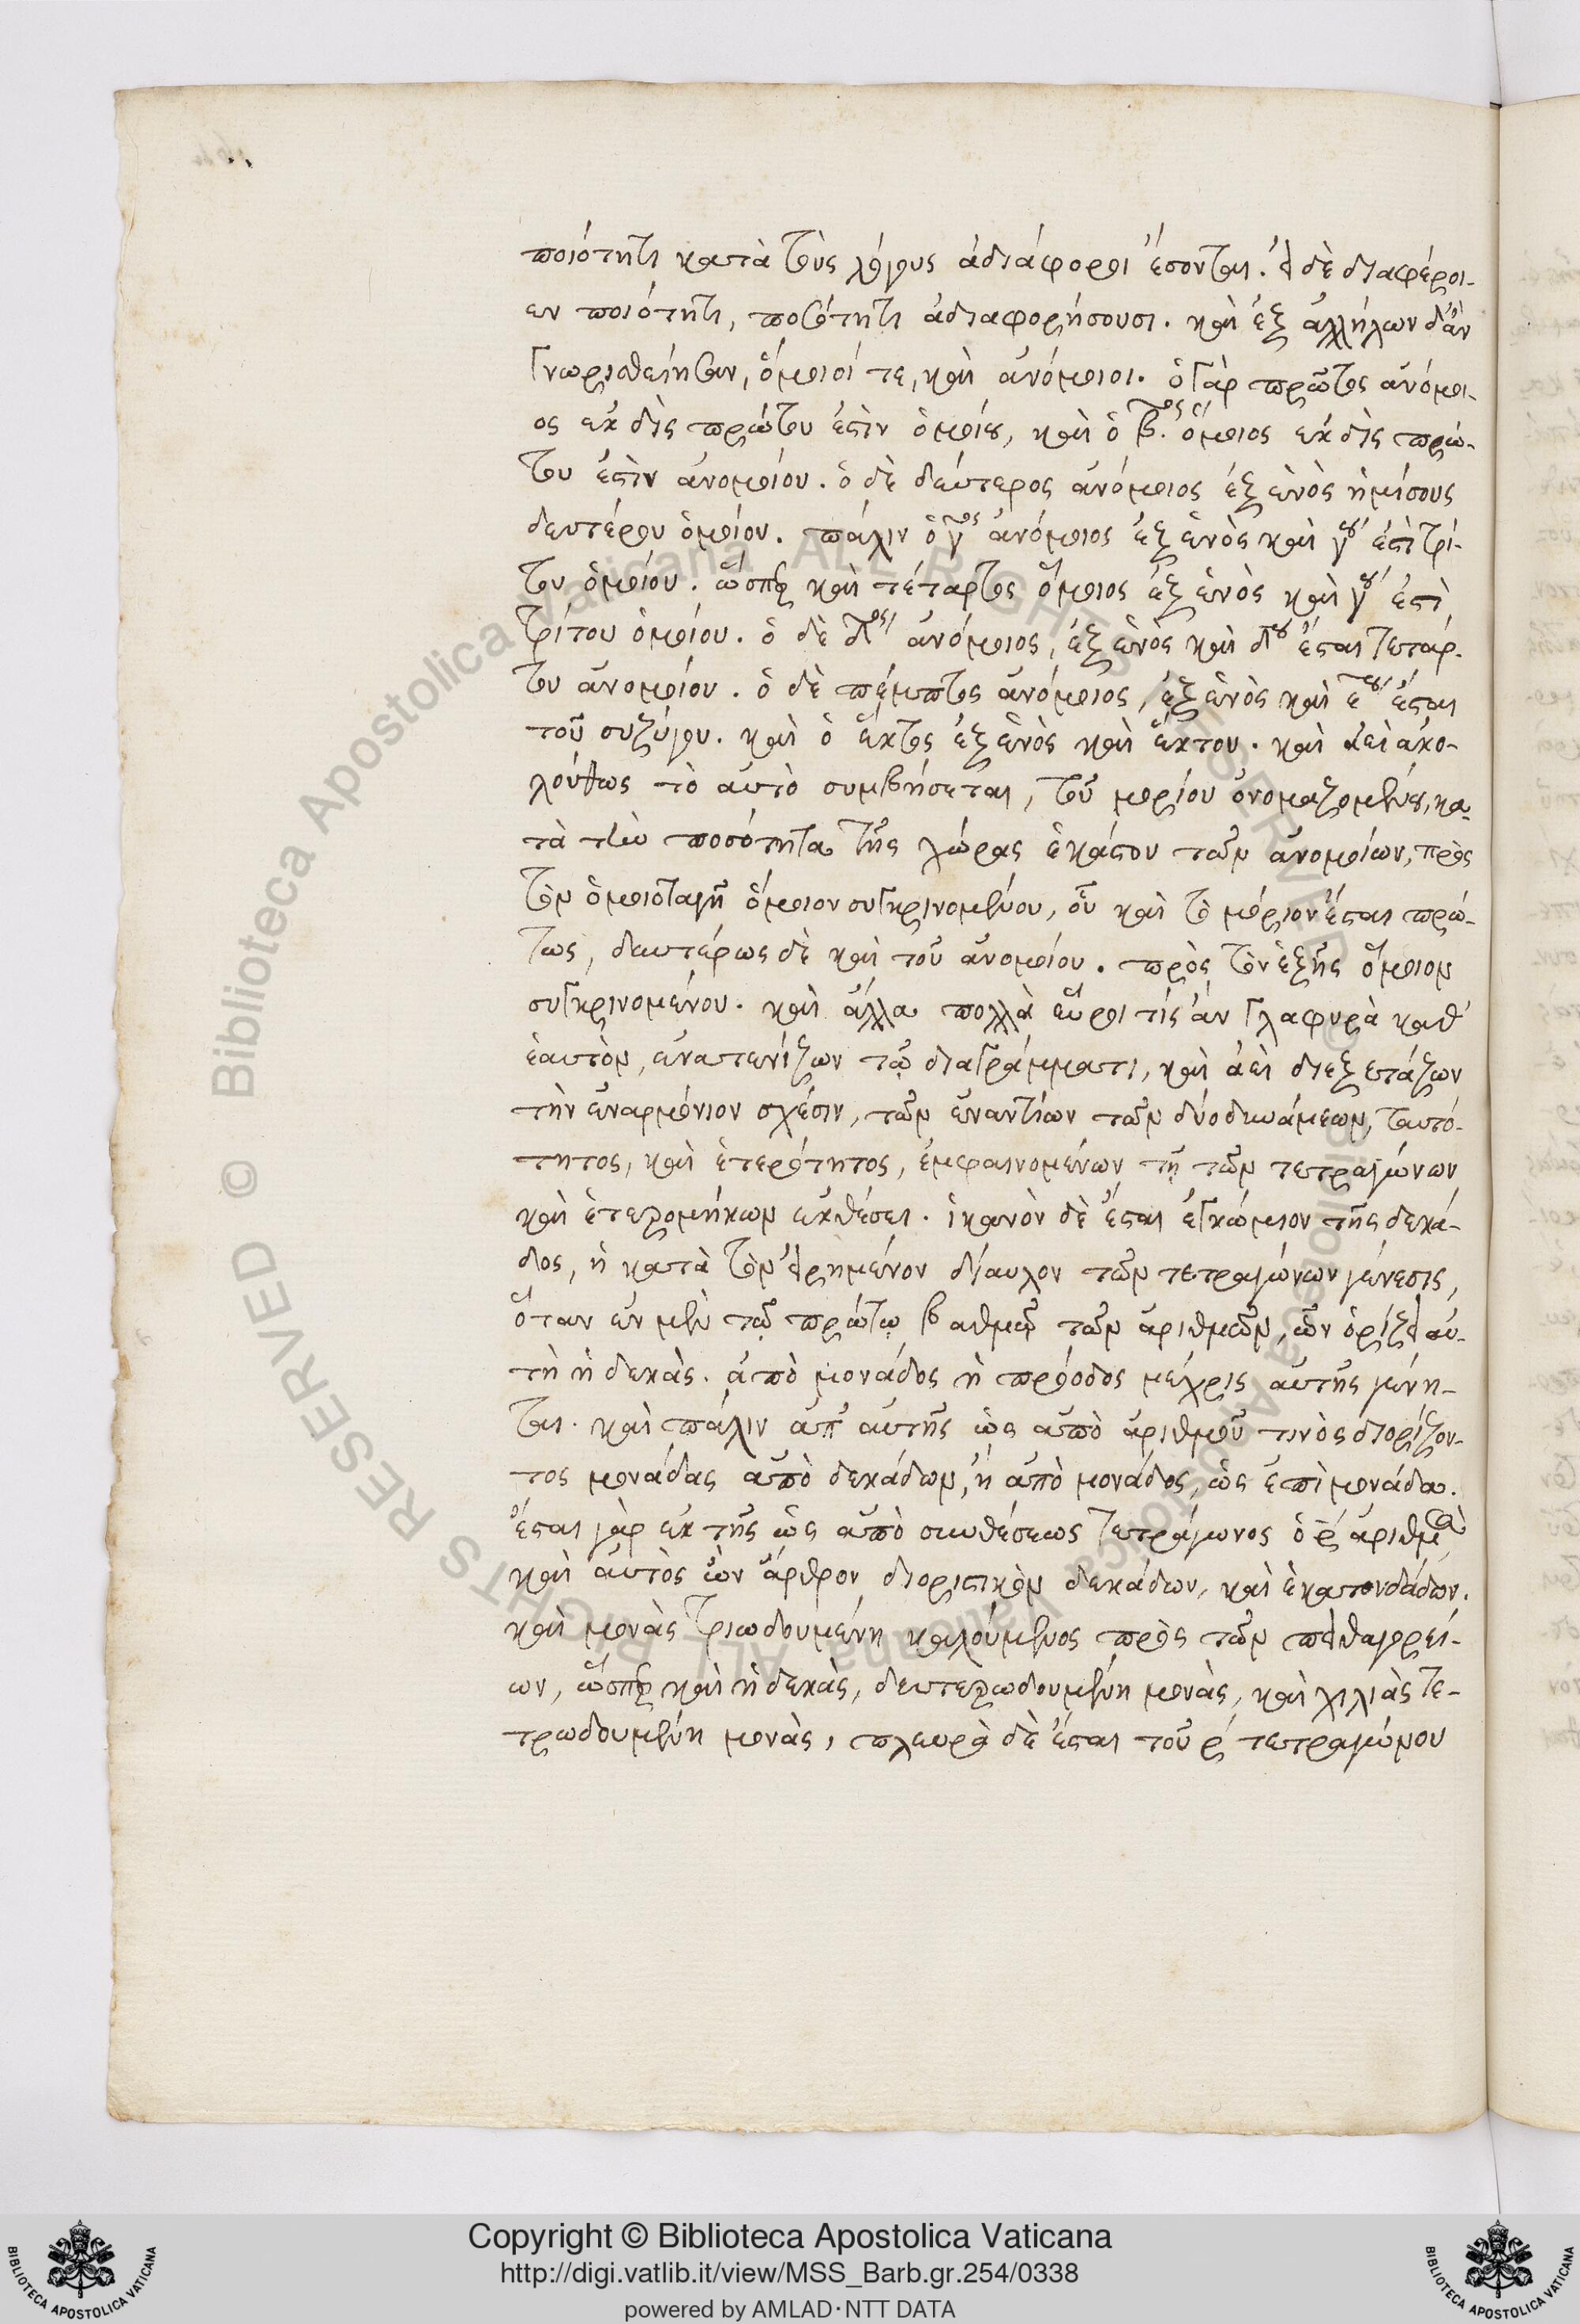 ποιότητι κατὰ τοὺς λόγους ἀδιάφοροι ἔσονται. εἰ δὲ διαφέροι-
εν ποιότητι, ποσότητι ἀδιαφορήσουσι. καὶ ἐξ ἀλλήλων δ' ἂν
γνωρισθείησαν, ὅμοιοί τε, καὶ ἀνόμοιοι. ὁ γὰρ πρῶτος ἀνόμοι-
ος ἐκ δὶς πρώτου ἐστὶν ὁμοίου, καὶ ὁ β.ος ὅμοιος ἐκ δὶς πρώ-
του ἐστὶν ἀνομοίου. ὁ δὲ δεύτερος ἀνόμοιος ἐξ ἑνὸς ἡμίσους
δευτέρου ὁμοίου. πάλιν ὁ γτος ἀνόμοιος ἐξ ἑνὸς καὶ γου ἐστὶ τρί-
του ὁμοίου. ὥσπερ καὶ τέταρτος ὅμοιος ἐξ ἑνὸς καὶ γου ἐστὶ
τρίτου ὁμοίου. ὁ δὲ δος ἀνόμοιος, ἐξ ἑνὸς καὶ δου ἔσται τετάρ-
του ἀνομοίου. ὁ δὲ πέμπτος ἀνόμοιος, ἐξ ἑνὸς καὶ ετου ἔσται
τοῦ συζύγου. καὶ ὁ ἕκτος ἐξ ἑνὸς καὶ ἕκτου. καὶ ἀεὶ ἀκο-
λούθως τὸ αὐτὸ συμβήσεται, τοῦ μορίου ὀνομαζομένου, κα-
τὰ τὴν ποσότητα τῆς χώρας ἑκάστου τῶν ἀνομοίων, πρὸς
τὸν ὁμοιοταγῆ ὅμοιον συγκρινομένου, οὗ καὶ τὸ μόριον ἔσται πρώ-
τως, δευτέρως δὲ καὶ τοῦ ἀνομοίου. πρὸς τὸν ἑξῆς ὅμοιον
συγκρινομένου. καὶ ἄλλα πολλὰ εὕροι τίς ἂν γλαφυρὰ καθ'
ἑαυτὸν, ἐνατενίζων τῷ διαγράμματι, καὶ ἀεὶ διεξετάζων
τὴν ἐναρμόνιον σχέσιν, τῶν ἐναντίων τῶν δύο δυνάμεων, ταυτό-
τητος, καὶ ἑτερότητος, ἐμφαινομένων τῇ τῶν τετραγώνων
καὶ ἑτερομήκων ἐκθέσει. ἱκανὸν δὲ ἔσται ἐγκώμιον τῆς δεκά-
δος, ἡ κατὰ τὸν εἰρημένον δίαυλον τῶν τετραγώνων γένεσις,
ὅταν ἐν μὲν τῷ πρώτῳ βαθμῷ τῶν ἀριθμῶν, ὧν ὁρίζει αὐ-
τὴ ἡ δεκὰς. ἀπὸ μονάδος ἡ πρόοδος μέχρις αὐτῆς γένη-
ται. καὶ πάλιν ἀπ' αὐτῆς ὡς ἀπὸ ἀριθμοῦ τινὸς διορίζον-
τος μονάδας ἀπὸ δεκάδων, ἢ ἀπὸ μονάδος, ὡς ἐπὶ μονάδα.
ἔσται γὰρ ἐκ τῆς ὡς ἀπὸ συνθέσεως τετράγωνος ὁ ρ ἀριθμ
καὶ αὐτὸς ὢν ἄρθρον διοριστικὸν δεκάδων, καὶ ἑκατοντάδων.
καὶ μονὰς τριωδουμένη καλούμενος πρὸς τῶν πειθαγορεί-
ων, ὥσπερ καὶ ἡ δεκὰς, δευτερωδουμένη μονὰς, καὶ χιλιὰς τε-
τρωδουμένη μονὰς, πλευρὰ δὲ ἔσται τοῦ ρ τετραγώνου
© Biblioteca Apostolica Vaticana ALL RIGHTS RESERVED
© Biblioteca Apostolica Vaticana ALL RIGHTS RESERVED
Copyright © Biblioteca Apostolica Vaticana
http://digi.vatlib.it/view/MSS_Barb.gr.254/0338
powered by AMLAD·NTT DATA
BIBLIOTECA APOSTOLICA VATICANA
BIBLIOTECA APOSTOLICA VATICANA